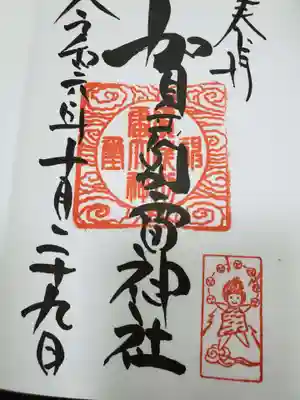 奉拝
賀茂別雷神社
令和六年十月二十九日